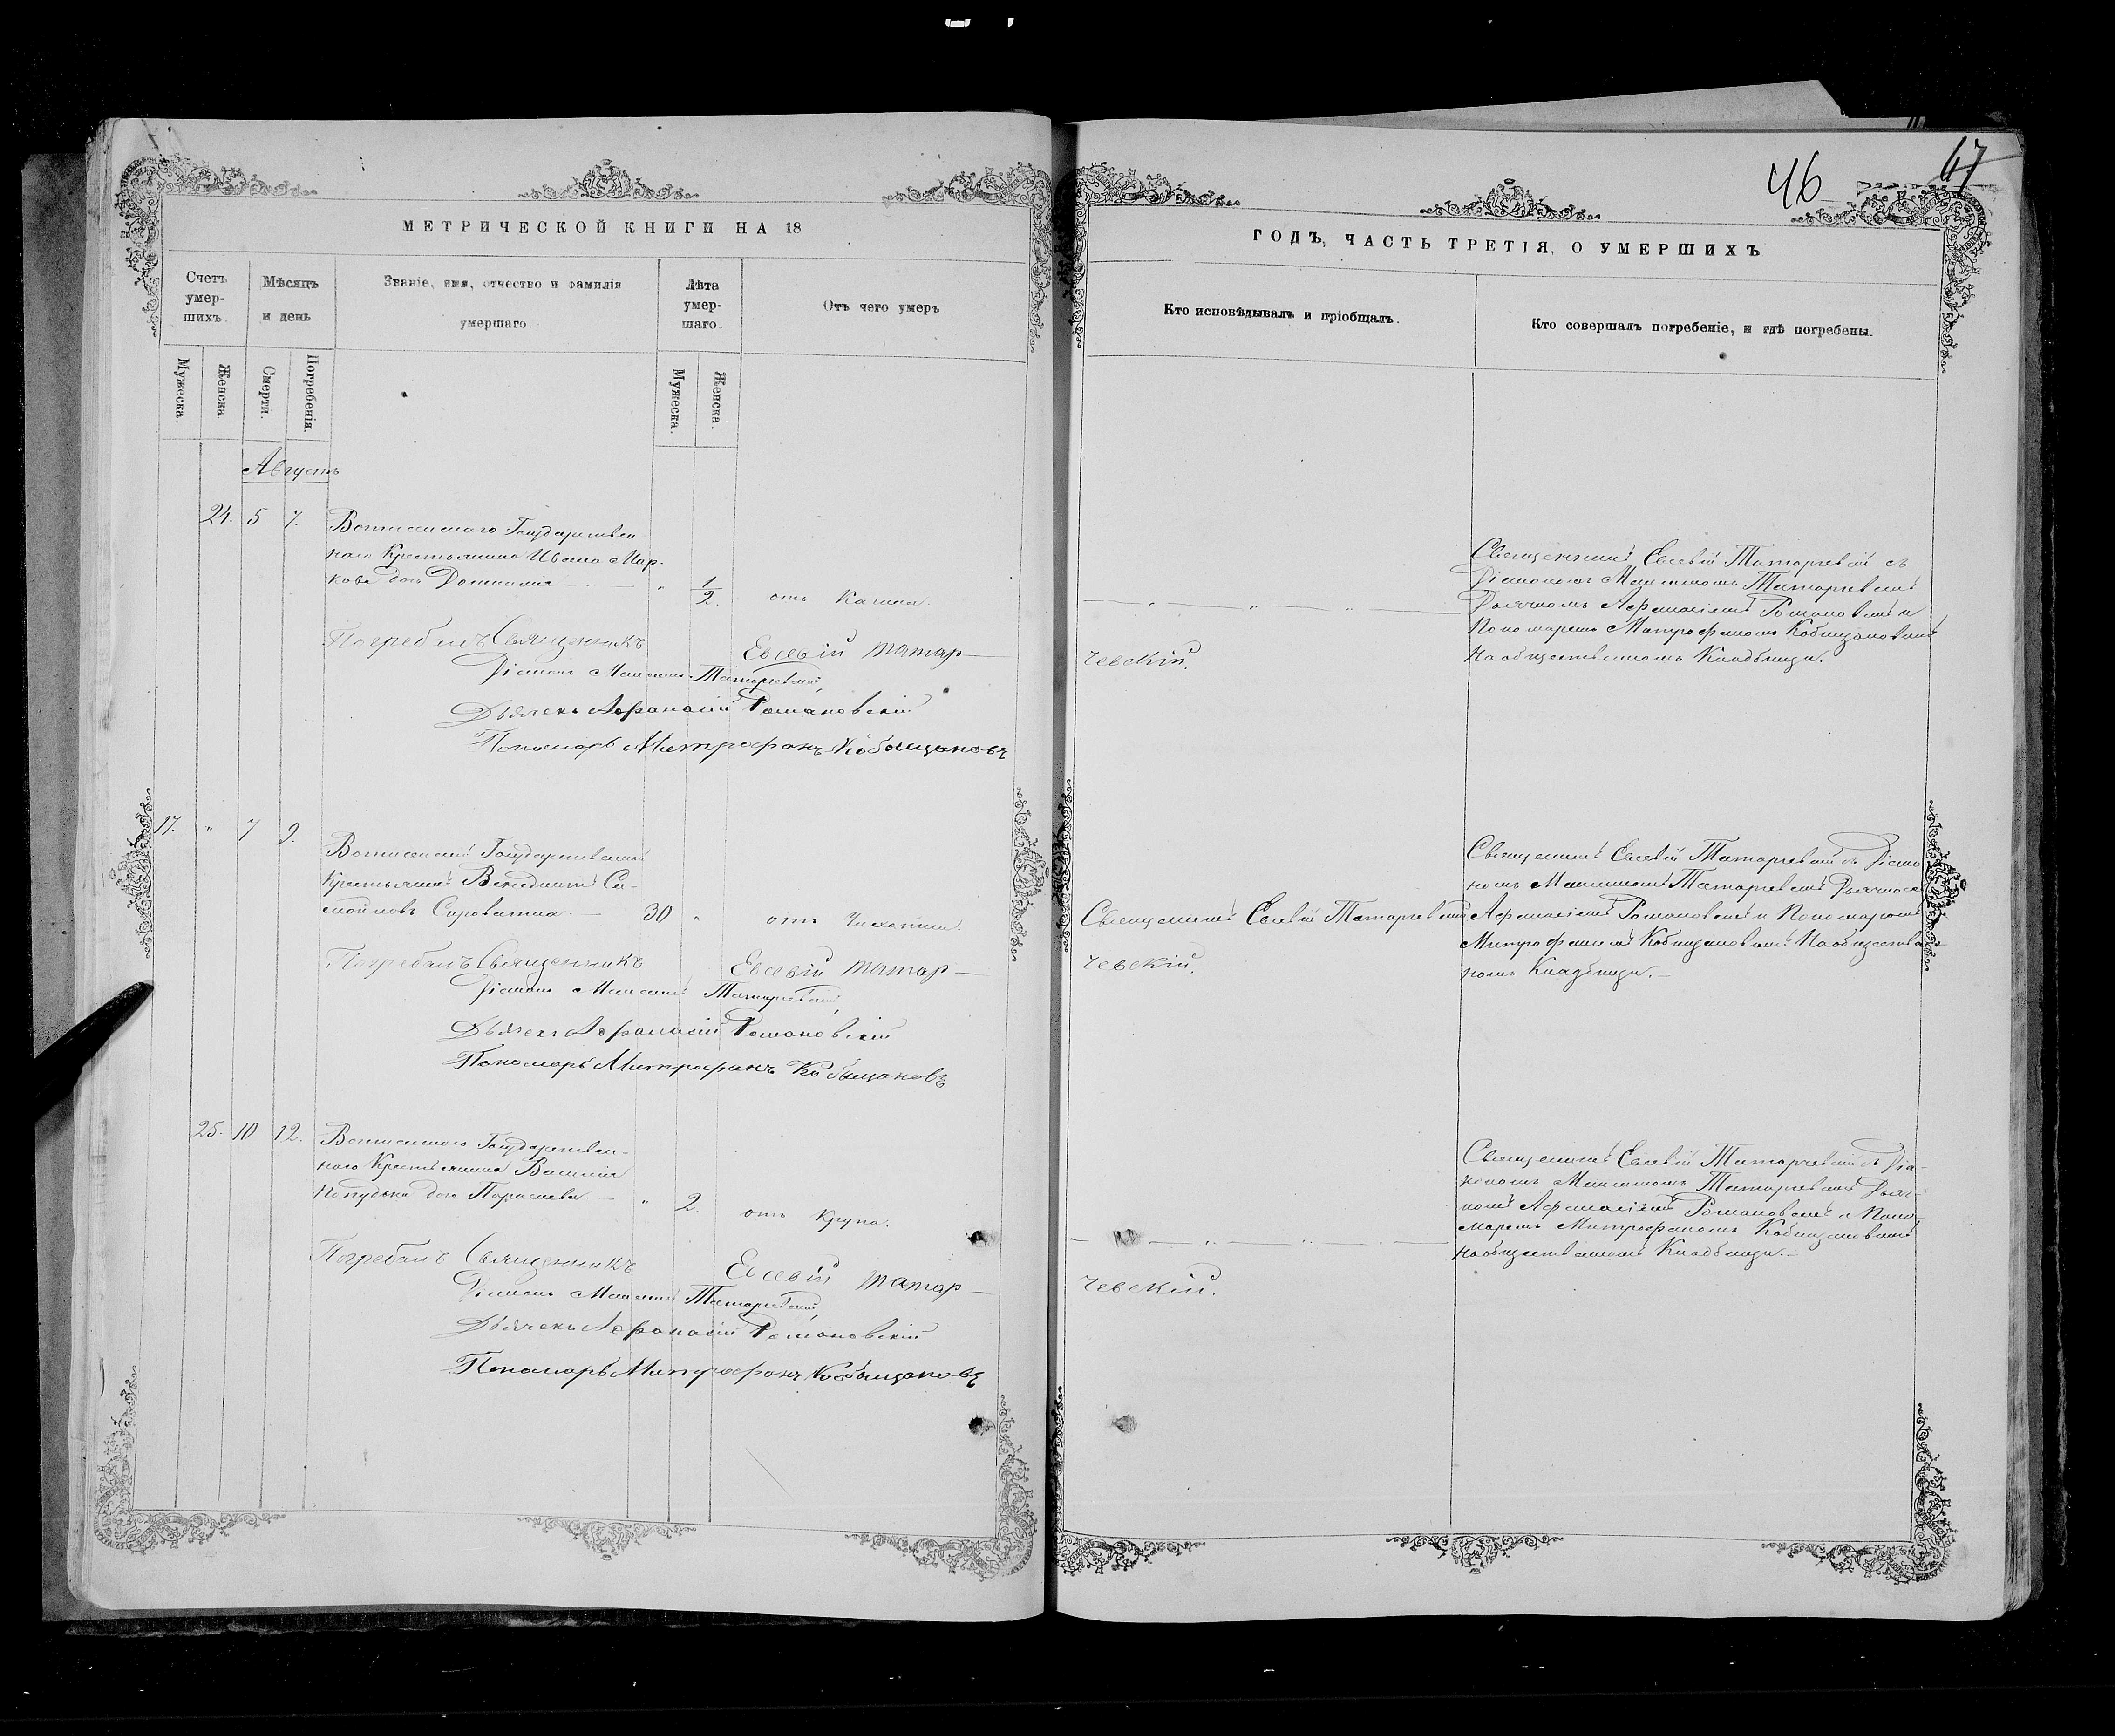 46
47
МЕТРИЧЕСКОЙ КНИГИ НА 18
ГОДЪ, ЧАСТЬ ТРЕТІЯ, О УМЕРШИХЪ
Счетъ умер-шихъ.
Мѣсяцъ и день
Званіе, имя, отчество и фамилія умершаго.
Лѣта умер-шаго.
Отъ чего умеръ
Кто исповѣдывалъ и пріобщалъ.
Кто совершалъ погребеніе, и гдѣ погребены.
Мужеска.
Женска
Смерти.
Погребенія.
Мужеска.
Женска.
Августъ
24. 5 7.
Государствен
наго Крестьянина Ивана Мар-
кова дочь
" 1/2. отъ Кашля.
Священникъ Евсевій Татарчевскій съ
Діакономъ Татарчевскимъ
Дьячкомъ Афанасіемъ Романовскимъ и
Пономаремъ Митрофаномъ Кобыщановымъ
На общественномъ Кладбищѣ.
Погребалъ Священникъ Евсевій Татар-
чевскій.
Діаконъ Татарчевскій,
Дьячекъ Афанасій Романовскій
Пономарь Митрофанъ Кобыщановъ
17. " 7 9.
Государственный
Крестьянинъ Венедиктъ Са-
мойловъ Сыроватка
30 " отъ Чихотки.
Священникъ Евсевій Татарчевскій
Священникъ Евсевій Татарчевскій съ Діако
номъ Татарчевскимъ Дьячкомъ
Афанасіемъ Романовскимъ и Пономаремъ
Митрофаномъ Кобыщановымъ На обществен-
номъ Кладбищѣ.
Погребалъ Священникъ Евсевій Татар-
чевскій.
Діаконъ Татарчевскій,
Дьячекъ Афанасій Романовскій
Пономарь Митрофанъ Кобыщановъ
25. 10 12.
Государствен-
наго Крестьянина Василія
дочь Параскева.
" 2. отъ Крупа.
Священникъ Евсевій Татарчевскій съ Діа-
кономъ Татарчевскимъ Дьяч-
комъ Афанасіемъ Романовскимъ и Поно-
маремъ Митрофаномъ Кобыщановымъ
На общественномъ Кладбищѣ.
Погребалъ Священникъ Евсевій Татар-
чевскій.
Діаконъ Татарчевскій,
Дьячекъ Афанасій Романовскій
Пономарь Митрофанъ Кобыщановъ